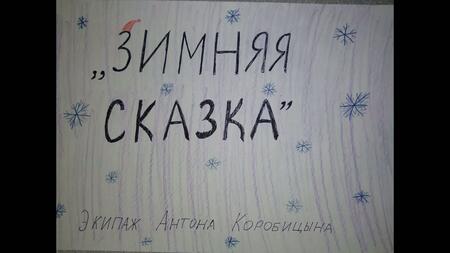 „ЗИМНЯЯ
СКАЗКА”
ЭКИПАЖ АНТОНА КОРОБИЦЫНА